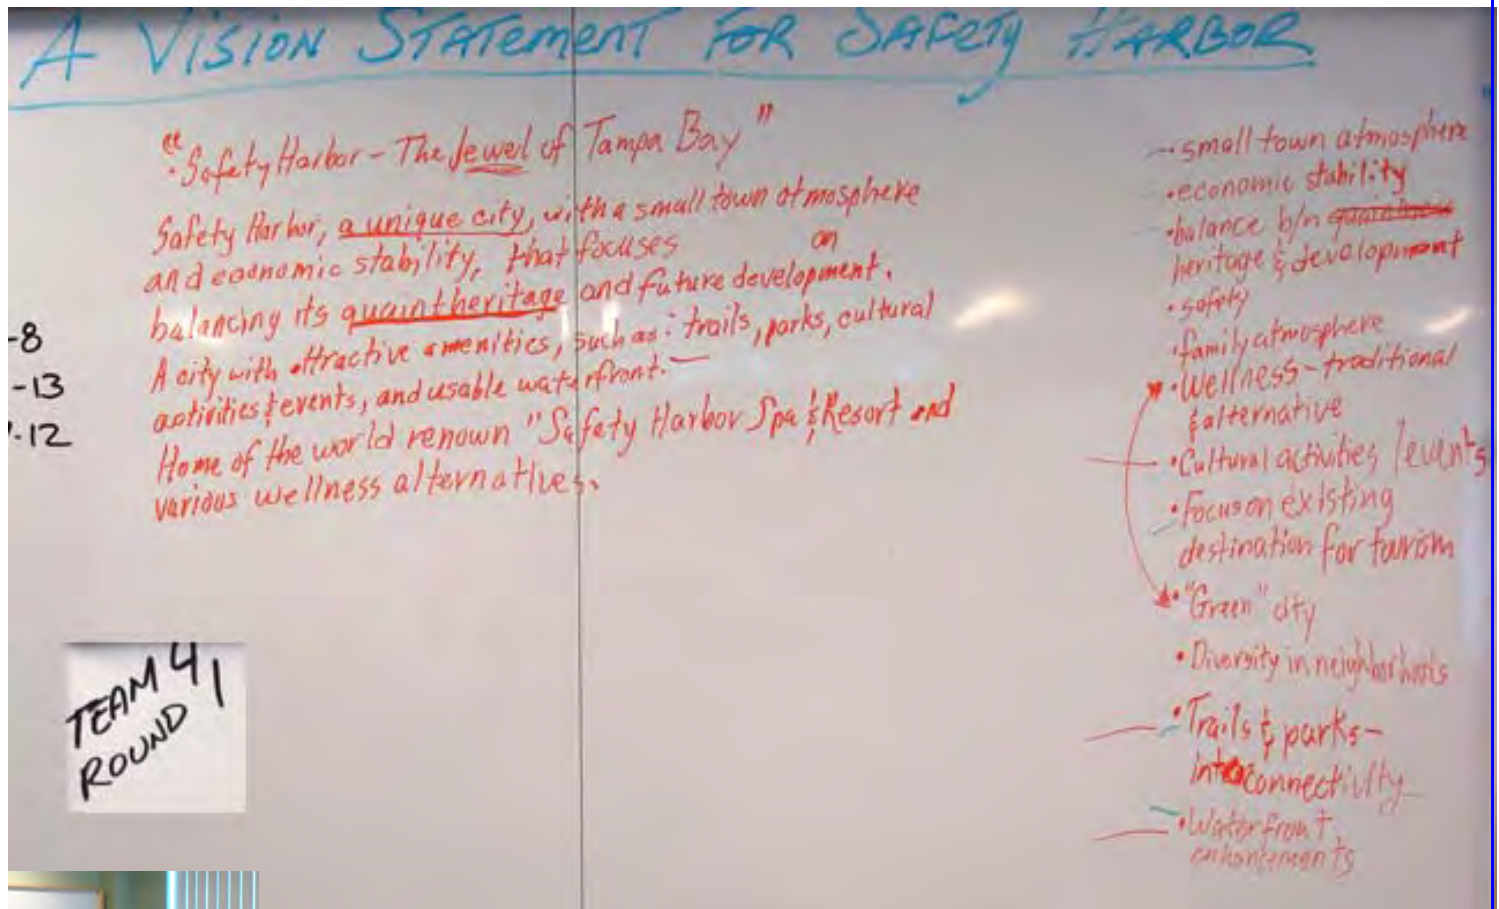 A VISION STATEMENT FOR SAFETY HARBOR
"Safety Harbor - The Jewel of Tampa Bay"
Safety Harbor, a unique city, with a small town atmosphere
and economic stability, that focuses on
balancing its quaint heritage and future development.
A city with attractive amenities, such as: trails, parks, cultural
activities & events, and usable waterfront. —
Home of the world renown "Safety Harbor Spa & Resort and
various wellness alternatives.
-8
-13
-12
TEAM 4
ROUND 1
• small town atmosphere
• economic stability
• balance b/n
heritage & development
• safety
• family atmosphere
• Wellness - traditional
& alternative
• Cultural activities / events
• Focus on existing
destination for tourism
• "Green" city
• Diversity in neighborhoods
• Trails & parks -
interconnectivity
• Waterfront
enhancements